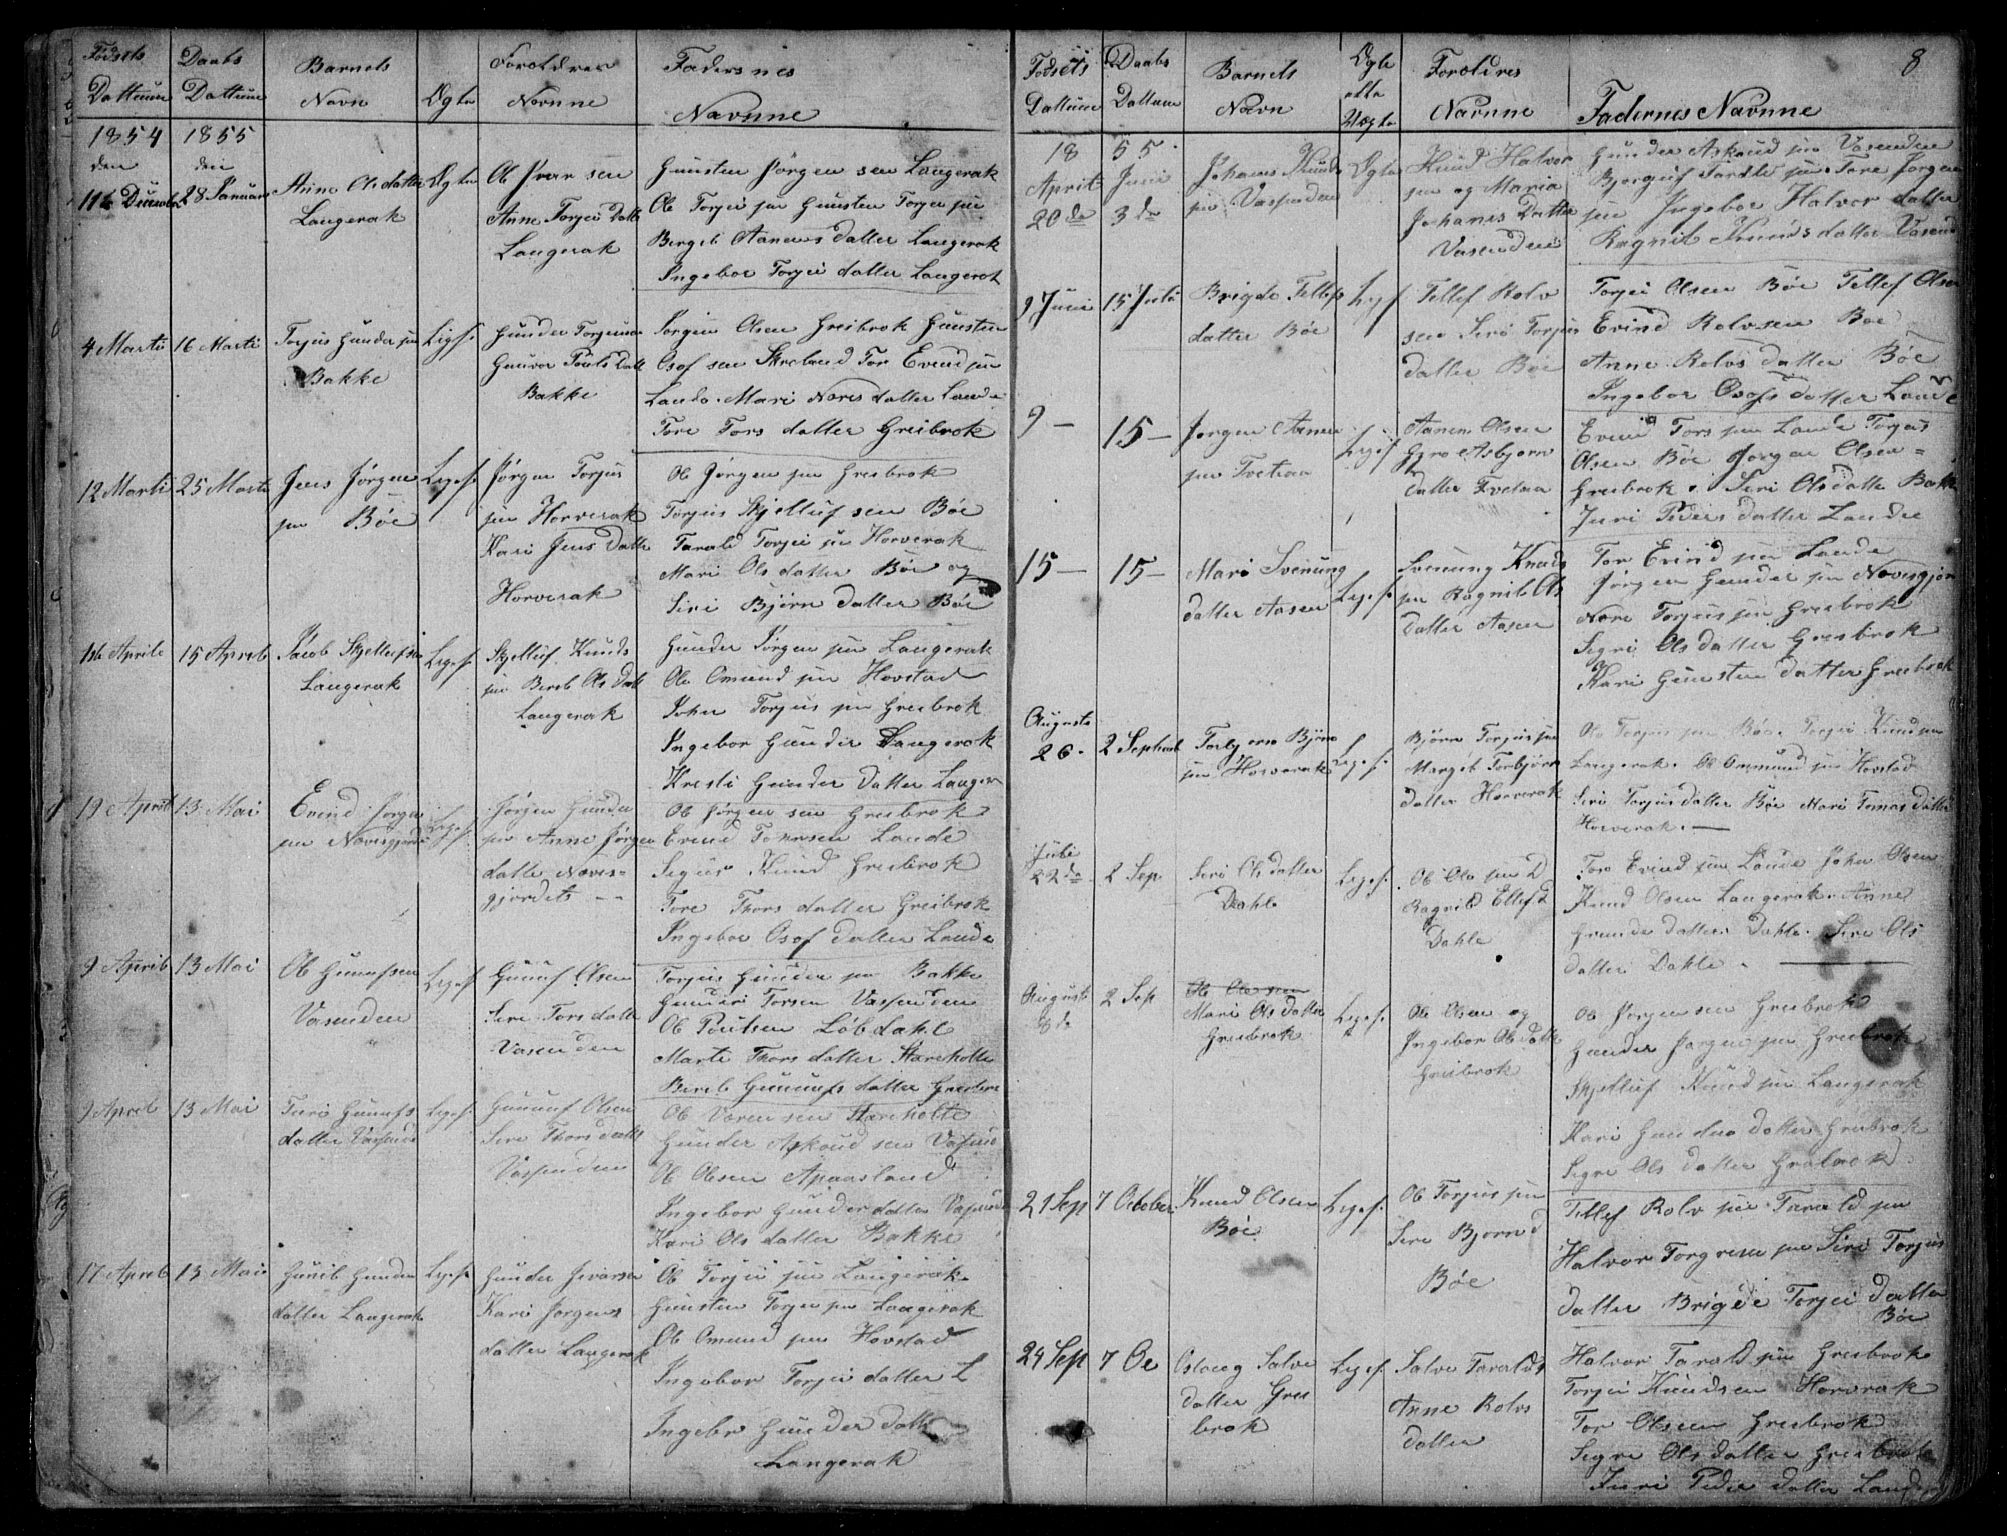 Fødsels Dattum
Daabs Dattum
Barnets Navn
Ægte
Foroldrer Navnne
Fadernes Navnne
1854 1855
den den
28 Januar
Anne Ols datter
Langerak
Ægte
Ole Ivar sen
Anne Torjei Datt
Langerak
Gunsten Jörgen sen Langerak
Ole Torjei sen Gunsten Torjei sen
Bergit Aanens datter Langerak
Ingebor Torjei datter Langerak
4 Marti 16 Marti
Torjus Gunder sen
Bakke
Ligs.
Gunder Torjusen
Gunvor Pouls Datt
Bakke
Jörgen Olsen Greibrok Gunsten
Osof sen Skreland Tor Evend sen
Lande. Mari Næres datter Lande
Tore Tors datter Greibrok
12 Marti 25 Marti
Jens Jörgen
sen Böe
Ligs.
Jörgen Torjus
sen Horverak
Kari Jens Datt
Horverak
Ole Jörgen sen Greibrok
Torjus Skjelluf sen Böe
Tarald Torjei sen Horverak
Mari Ols datter Böe og
Siri Björn datter Böe
Aprili 15 April
Jacob Skjellufsen
Langerak
Ligs.
Skjelluf Knuds
sen Bereb Ols Datt
Langerak
Gunder Jörgen sen Langerak
Ole Omund sen Hovstad
John Torjus sen Greibrok
Ingebor Gunder Langerak
Kresti Gunder Datter Langer
19 April 13 Mai
Evend Jorgen
sen Noresgjordet
Ligs.
Jörgen Gunder
sen Anne Jörgen
datte Nores=
gjordet - -
Ole Jörgen sen Greibrok
Evend Tomesen Lande
Sigur Knud Greibrok
Tore Thors datter Greibrok
Ingebor Osof datter Lande
9 April 13 Mai
Ole Gunufsen
Vasenden
Ligs.
Gunuf Olsen
Sire Tors datt
Vasenden
Torjus Gunder sen Bakke
Gunder Torsen Vassenden
Ole Poulsen Löbdahl
Marte Thors datter Stareholte
Bereb Gunnufs datter Greibro
9 April 13 Mai
Turi Gunufs
datter Vassend
Ligs.
Gunuf Olsen
Sire Thors datt
Vassenden
Ole Voren sen Stareholte
Gunder Askoud sen Vassend
Ole Olesen Apaasland
Ingebor Gunder datter Vassend
Kari Ols datter Bakke
17 April 13 Mai
Gunil Gunder
datter Langerak
Ligs.
Gunder Ivarsen
Kari Jorgens
datter Langerak
Ole Torjei sen Langerak
Gunsten Torjei sen Langerak
Ole Omund sen Hovstad
Ingebor Torjei datter L
Ingebor Gunder datt
Langerak
8
Fodsels Dattum
Daabs Dattum
Barnets Navn
Ægte elle Uægte
Foroldres Navnne
Fadernes Navnne
18 55.
April Juni
20de 3de
Johans Knuds
sen Vassenden
Ægte
Knud Halvor
sen og Maria
Johanes Datter
Vasenden
Gunder Askoud sen Vasenden
Bjorguf Tardle sen Tore Jorgen
sen Ingebor Halvor datter
Ragnil Knuds datter Vasend
9 Juni 15 Juli
Brigde Tellefs
datter Böe
Ligs.
Tellef Rolv
sen Siri Torjus
datter Böe
Torjei Olsen Böe Tellef Olsen
Evind Rolvsen Böe
Anne Rolvs datter Böe
Ingebor Osofs datter Lande
9 — 15 —
Jorgen Aanen
sen Tvetaa
Ligs.
Aanen Olsen
Gyro Asbjorn
datter Tvetaa
Evend Tors sen Lande Torjus
Olsen Böe Jorgen Olsen =
Greibrok. Siri Ols datte Bakke
Juri Peders datter Lande
15 — 15 —
Mari Svenung
datter Aasen
Ligs.
Svenung Knuds
sen Ragnil Ols
datter Aasen
Tor Evind sen Lande
Jörgen Gunder sen Noresgjor
Nore Torjus sen Greibrok
Segri Ols datter Greibrok
Kari Gunsten datter Greibrok
Augusti
26. 2 Septemb
Torbjorn Björn
sen Horverak
Ligs.
Björn Torjus sen
Margit Torbjörn
datter Horverak
Ole Torjus sen Böe. Torjei Knud sen
Langerak. Ole Ommund sen Hovstad
Siri Torjus datter Böe Mari Tomas datter
Horverak. —
Juli
22de 2 Sep
Siri Ols datter
Dahle
Ligs.
Ole Ole sen D
Ragnild Ellefs D
Dahle
Tore Evind sen Lande John Olsen
Knud Olsen Langerak. Anne
Gunder datter Dahle. Sire Ols
datter Dahle. —
August
8de 2 Sep
Mari Ols datter
Greibrok
Ligs.
Ole Olsen og
Ingebor Ols datte
Greibrok
Ole Jörgen sen Greibrok
Gunder Jorgen sen Greibrok
Skjelluf Knud sen Langerak
Kari Gundua datter Greibrok
Segre Ols datter Greibrok
21 Sep 7 October
Knud Olsen
Böe
Ligs.
Ole Torjus sen
Sire Bjorn d
Böe
Tellef Rolv sen Tarald sen
Halvor Torgresen sen Siri Torjus
datter Brigde Torjei datter
Böe
24 Sep 7 Oc
Osloug Salve
datter Grei
brok
Ligs.
Salve Taralds
Anne Rolvs
datter
Halvor Tarald sen Greibrok
Torjei Knudsen Horverak
Tor Olsen Greibrok
Segre Ols datter Greibrok
Juri Peder datter Lande